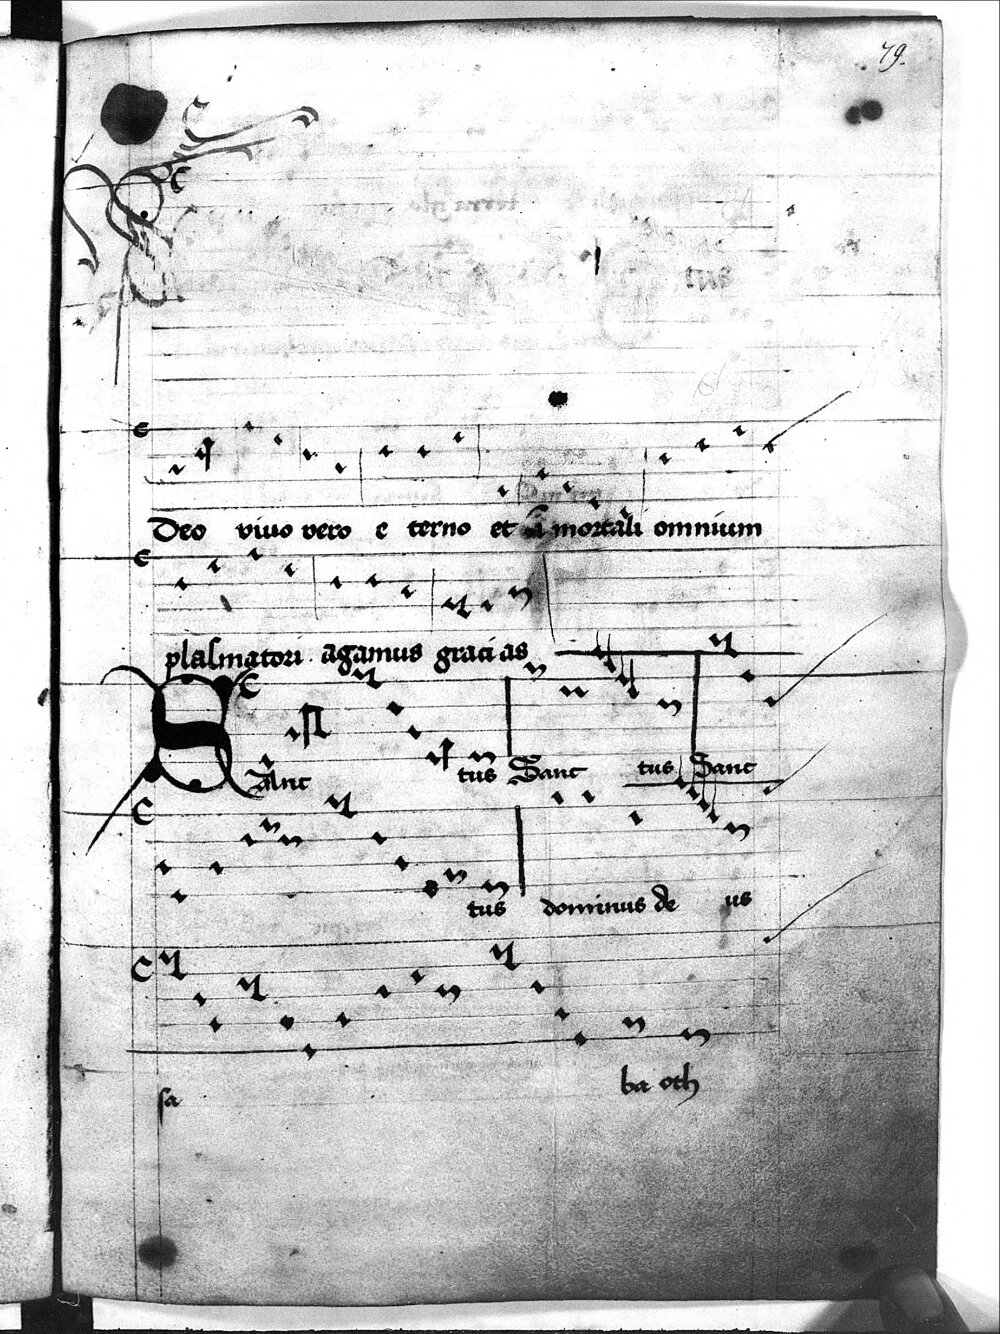 79.
Deo vivo vero e terno et mortali omnium
plasmatori agamus graci as
Sanc tus Sanc tus Sanc
tus dominus de us
sa ba oth